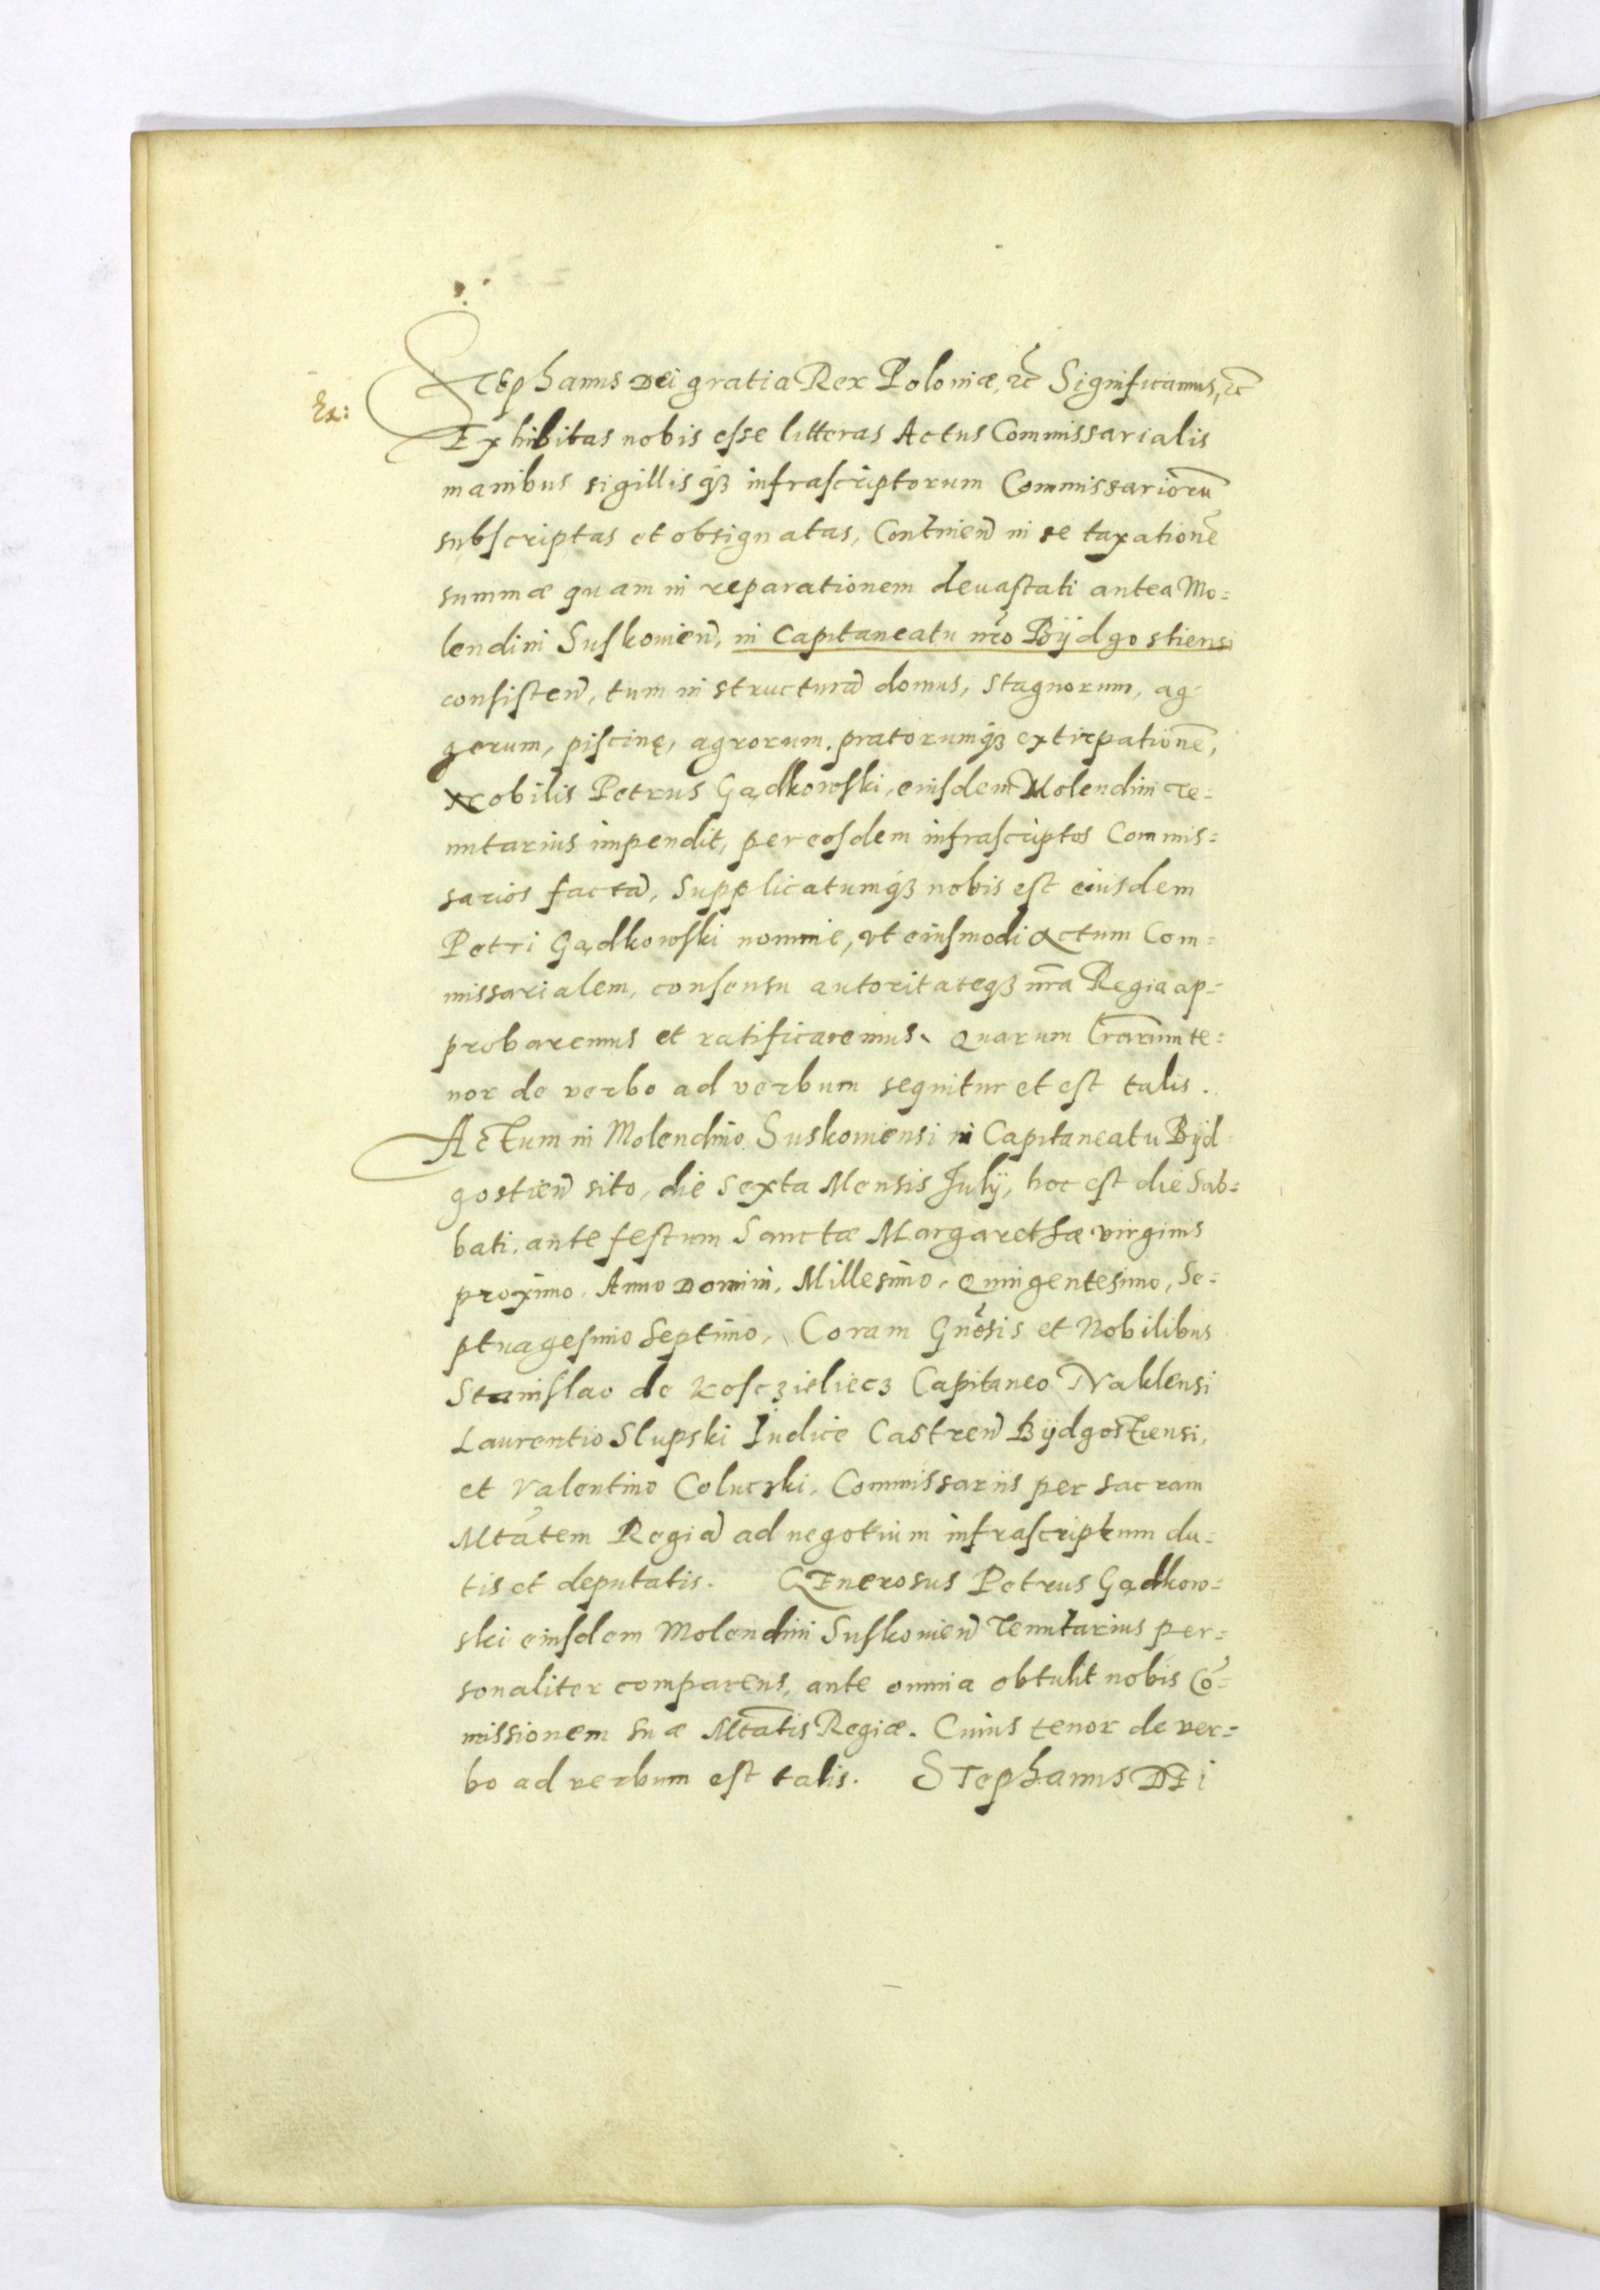 Stephanus Dei gratia Rex Poloniæ, etc̃ Significamus, etc̃
Ex:
Exhibitas nobis esse litteras Actus Commissarialis
manibus sigillisq́ꝫ infrascriptorum Commissariorũ
subscriptas et obsignatas, Continen̄ in se taxationẽ
summæ quam in reparationem deuastati antea Mo=
lendini Suskouien̄, in Capitaneatu nr̃o Bÿdgostiensi
consisten̄, tum in structurã domus, stagnorum, ag=
gerum, piscinę, agrorum, pratorumq́ꝫ extirpationẽ,
Nobilis Petrus Gądkowski, eiusdem Molendini Te=
nutarius impendit, per eosdem infrascriptos Commis=
sarios factã, Supplicatumq́ꝫ nobis est eiusdem
Petri Gądkowski nomine, vt eiusmodi actum Com=
missarialem, consensu autoritateq́ꝫ nr̃a Regia ap=
probaremus et ratificaremus. Quarum l̃rarum te=
nor de verbo ad verbum sequitur et est talis.
Actum in Molendino Suskouiensi in Capitaneatu Bÿd=
gostien̄ sito, die Sexta Mensis Julÿ, hoc est die Sab=
bati, ante festum Sanctæ Margarethæ virginis
proximo. Anno Domini, Millesimo, Quingentesimo, Se=
ptuagesimo Septimo, Coram Gñosis et Nobilibus
Stanislao de Kosczieliecz Capitaneo Naklensi
Laurentio Slupski Iudice Castren̄ Bÿdgostiensi,
et Valentino Coluczki, Commissariis per sacram
Mtãtem Regiã ad negotium infrascriptum da=
tis et deputatis. Generosus Petrus Gądkow=
ski eiusdem Molendini Suskouien̄ Tenutarius per=
sonaliter comparens, ante omnia obtulit nobis Cõ=
missionem suæ Mtãtis Regiæ. Cuius tenor de ver=
bo ad verbum est talis. Stephanus DEi